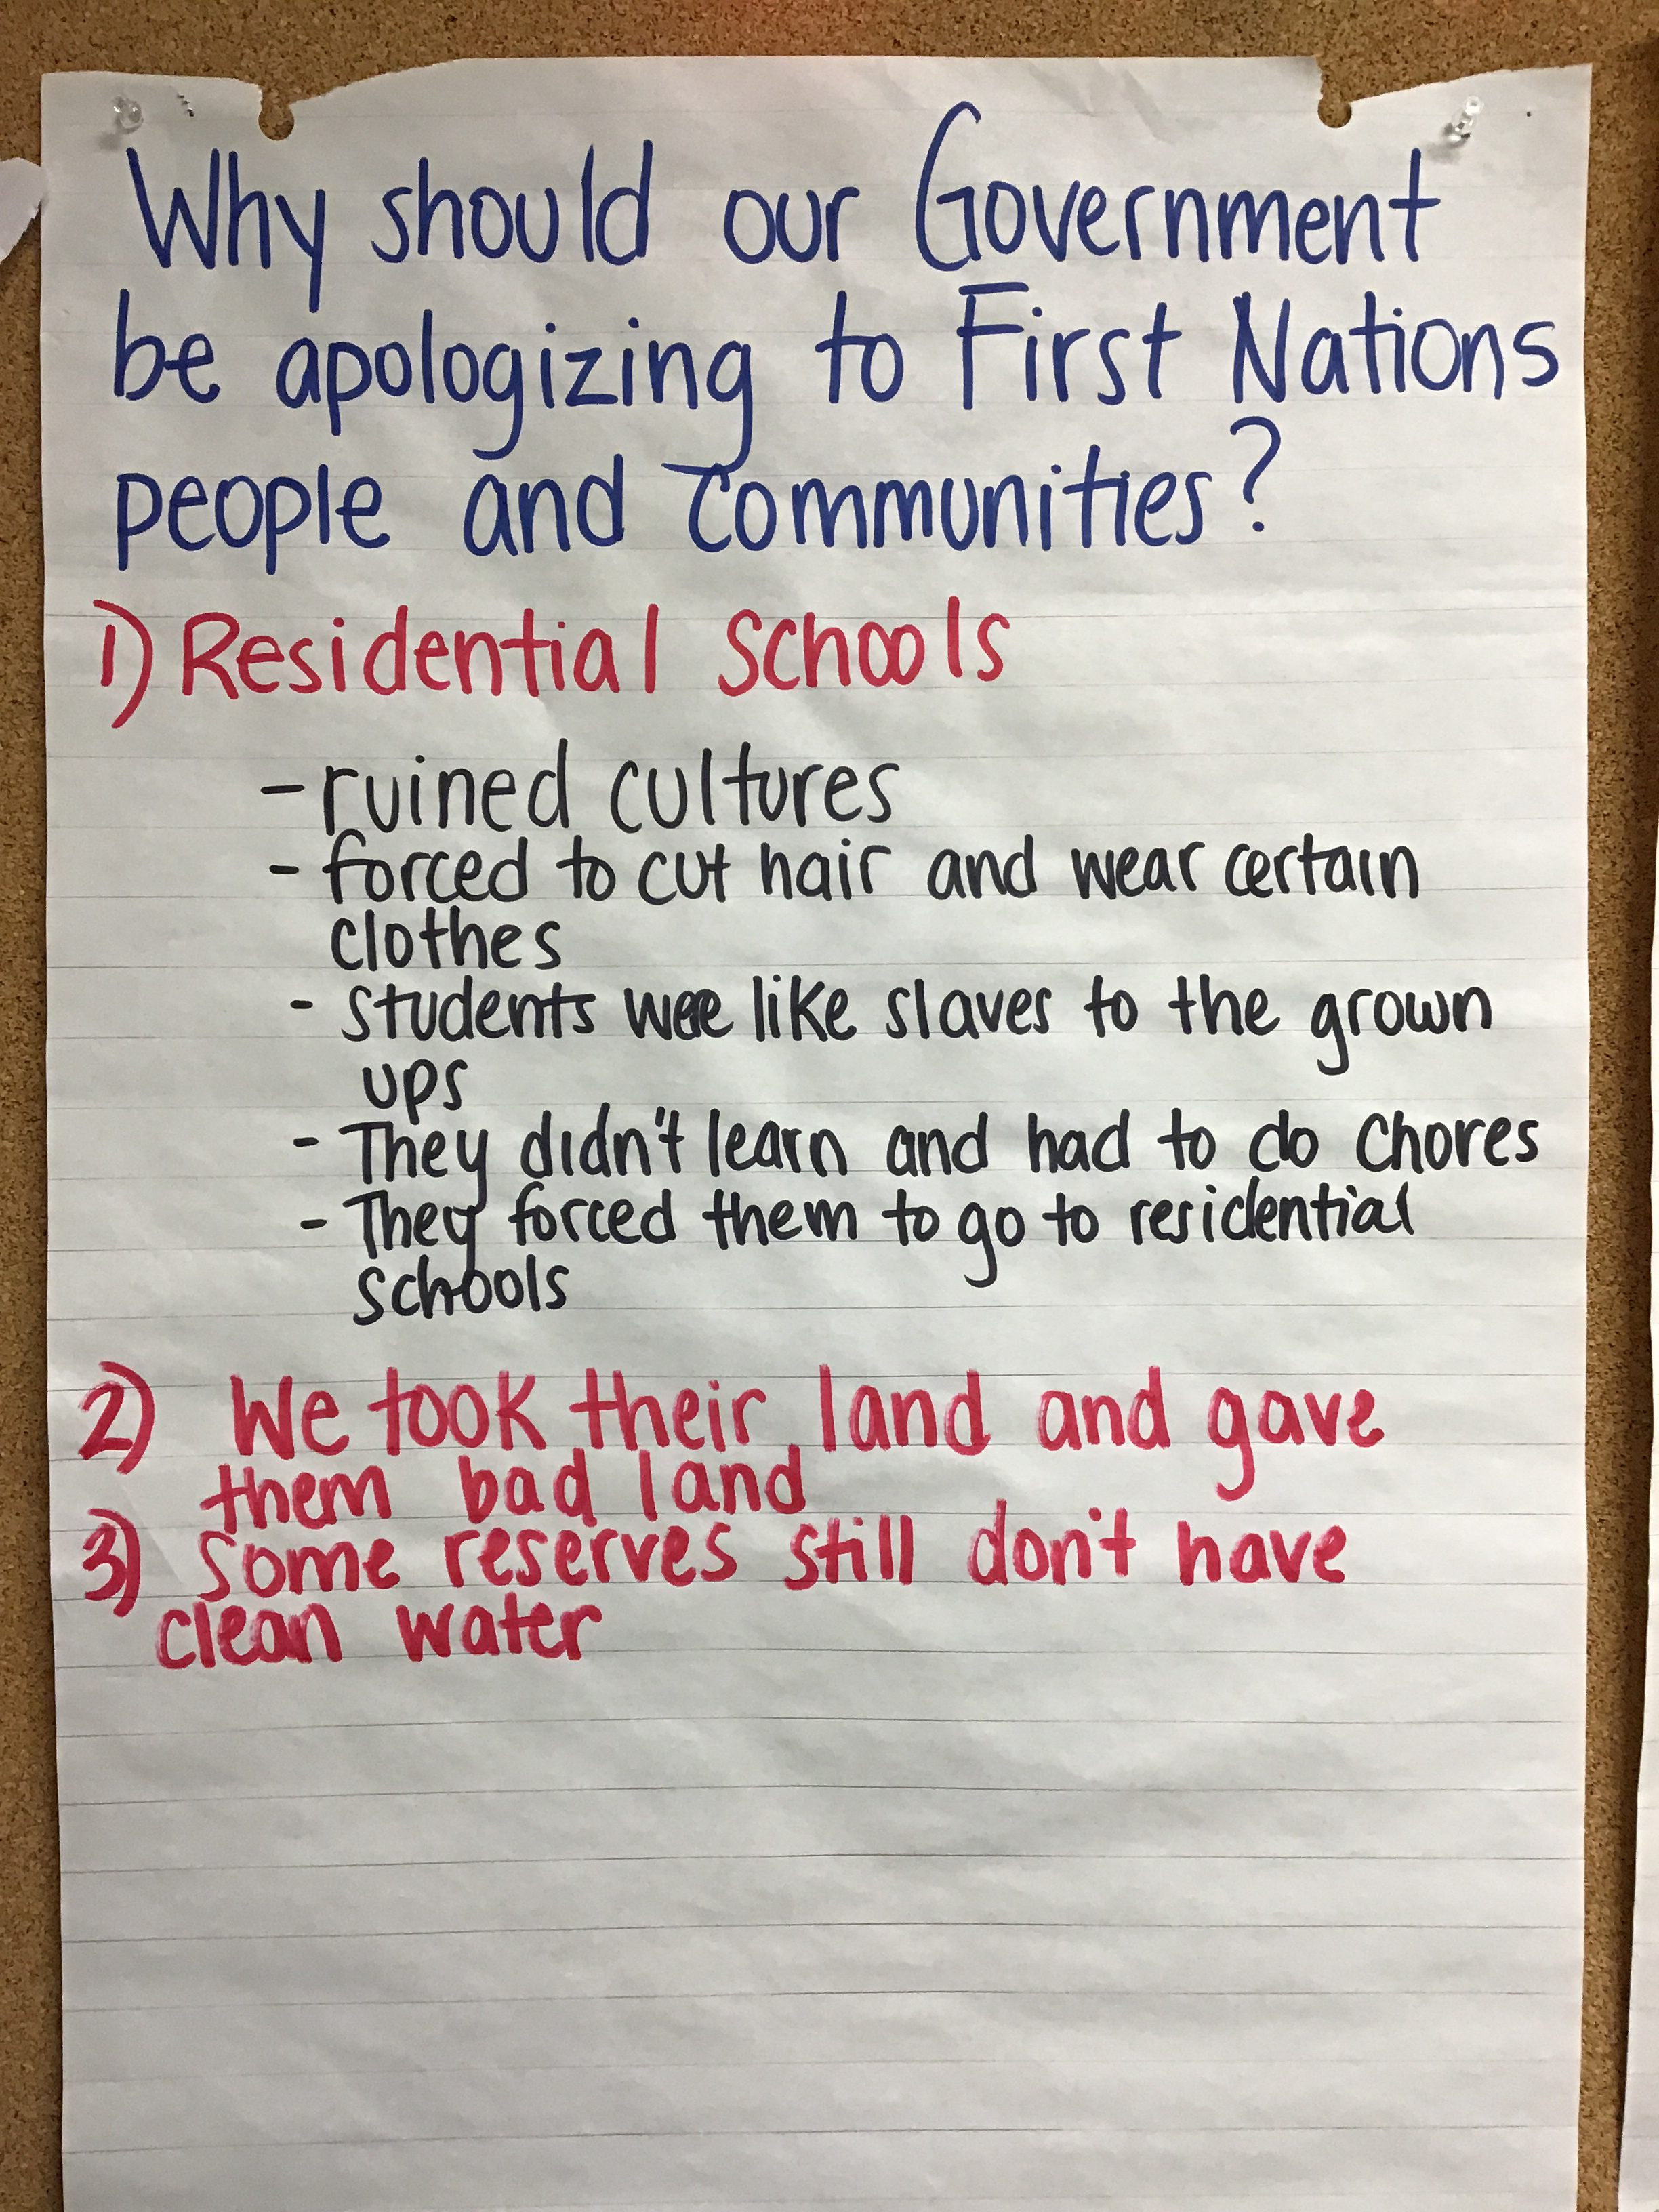 Why should our Government
be apologizing to First Nations
people and communities?
1) Residential Schools
- ruined cultures
- forced to cut hair and wear certain
clothes
- students were like slaves to the grown
ups
- They didn't learn and had to do chores
- They forced them to go to residential
schools
2) We took their land and gave
them bad land
3) Some reserves still don't have
clean water